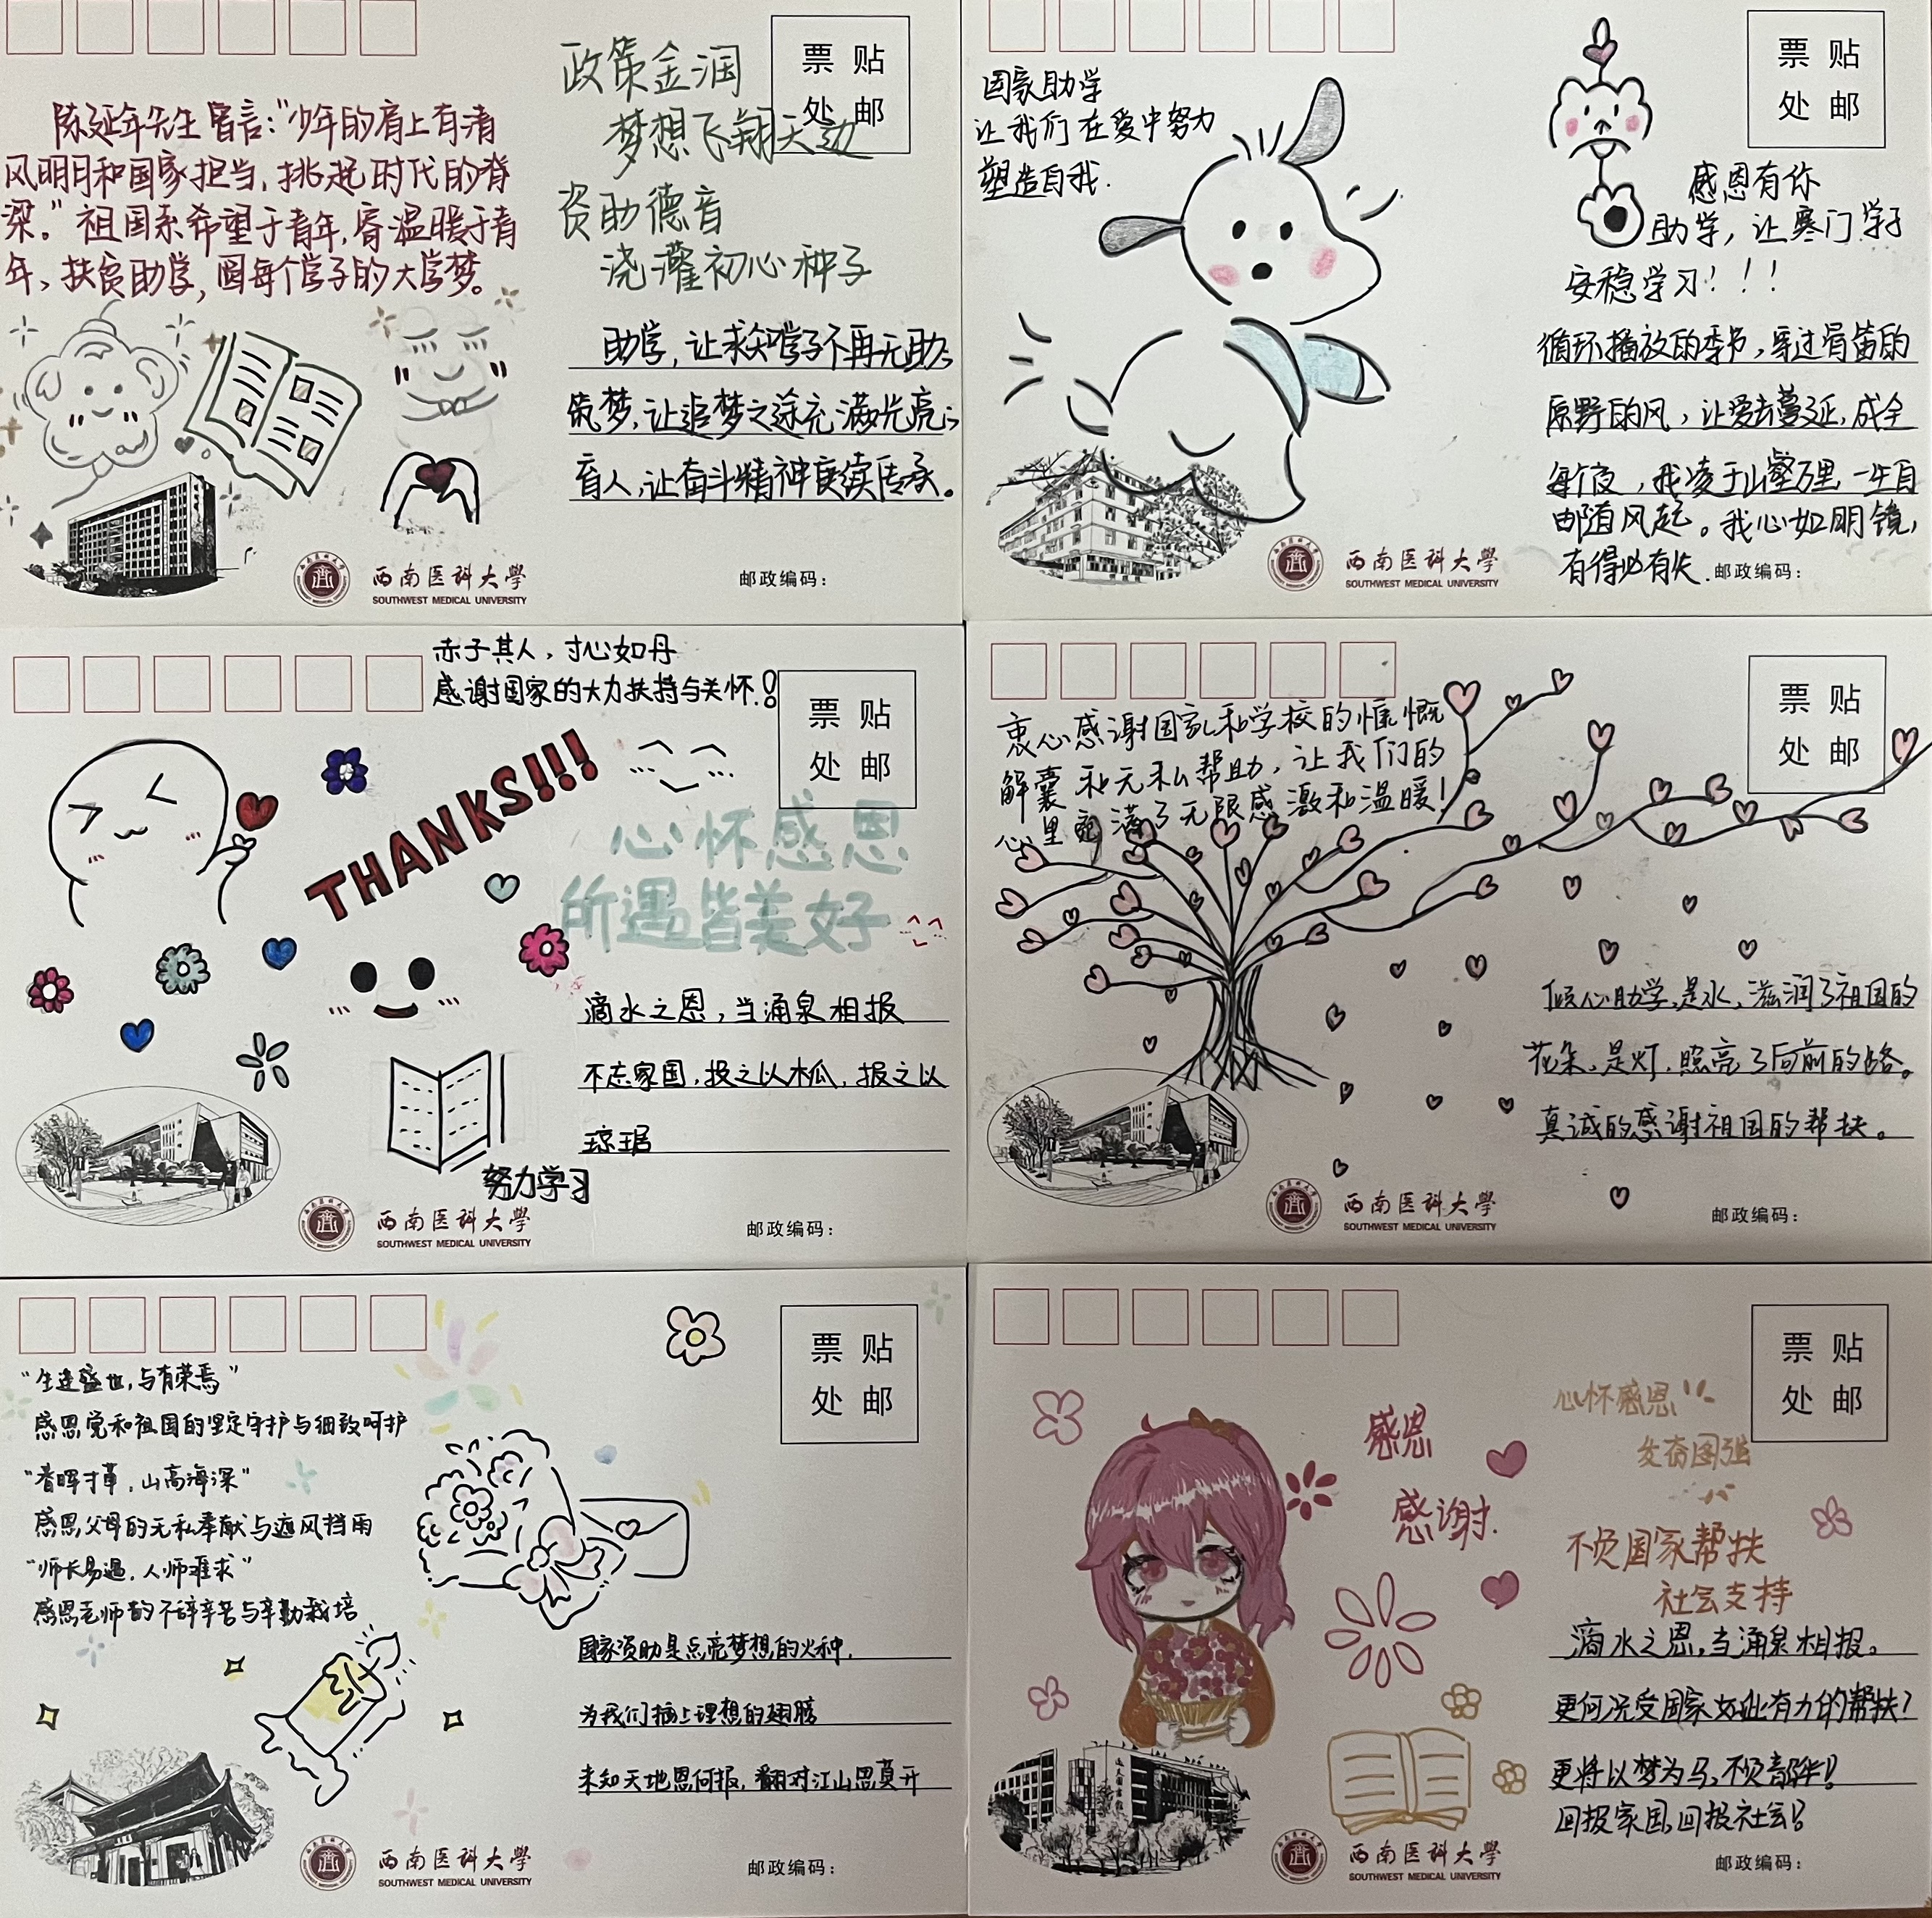 政策金润
梦想飞翔天边
资助德音
浇灌初心种子
票 贴
处 邮
陈延年先生留言:“少年的肩上有清
风明月和国家担当,挑起时代的脊
梁。”祖国系希望于青年,寄温暖于青
年,扶贫助学,圆每个学子的大学梦。
助学,让求知学子不再无助;
筑梦,让追梦之途充满光亮;
育人,让奋斗精神赓续传承。
西南医科大学
SOUTHWEST MEDICAL UNIVERSITY
邮政编码:
国家助学
让我们在爱中努力
塑造自我.
票 贴
处 邮
感恩有你
助学,让寒门学子
安稳学习!!!
循环播放的季节,穿过骨笛的
原野的风,让爱去蔓延,成全
每个夜,我凌于山壑万里 一生自
由随风起。我心如明镜,
有得必有失.
西南医科大学
SOUTHWEST MEDICAL UNIVERSITY
邮政编码:
赤子其人,寸心如丹
感谢国家的大力扶持与关怀!
票 贴
处 邮
THANKS!!!
心怀感恩
所遇皆美好
滴水之恩,当涌泉相报
不忘家国,投之以木瓜,报之以
琼琚
努力学习
西南医科大学
SOUTHWEST MEDICAL UNIVERSITY
邮政编码:
衷心感谢国家和学校的慷慨
解囊和无私帮助,让我们的
心里充满了无限感激和温暖!
票 贴
处 邮
助学,是水,滋润了祖国的
花朵,是灯,照亮了向前的路。
真诚的感谢祖国的帮扶。
西南医科大学
SOUTHWEST MEDICAL UNIVERSITY
邮政编码:
“生逢盛世,与有荣焉”
感恩党和祖国的坚定守护与细致呵护
“春晖寸草,山高海深”
感恩父母的无私奉献与遮风挡雨
“师长易遇,人师难求”
感恩老师的不辞辛苦与辛勤栽培
票 贴
处 邮
国家资助是点亮梦想的火种,
为我们插上理想的翅膀
未知天地恩何报,翻对江山思莫开
西南医科大学
SOUTHWEST MEDICAL UNIVERSITY
邮政编码:
票 贴
处 邮
感恩
感谢.
心怀感恩
发奋图强
不负国家帮扶
社会支持
滴水之恩,当涌泉相报。
更何况受国家如此有力的帮扶?
更将以梦为马,不负韶华!
回报家国,回报社会!
西南医科大学
SOUTHWEST MEDICAL UNIVERSITY
邮政编码: